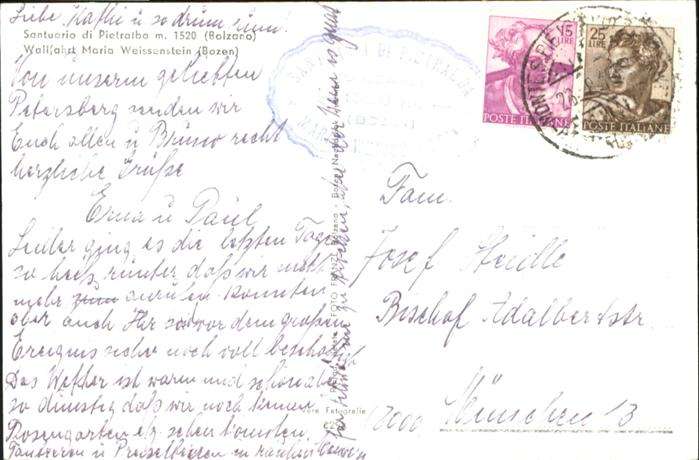 Liebe Kathi u so drum rum
Santuario di Pietralba m. 1520 (Bolzano)
Wallfahrt Maria Weissenstein (Bozen)
Von unserm geliebten
Petersberg senden wir
Euch allen u Bruno recht
herzliche Grüße
Erna u Paul
Leider ging es die letzten Tage
so heiß runter daß wir nicht
mehr anrufen konnten
aber auch Ihr vor dem großen
Ereignis sicher noch voll beschäft.
Das Wetter ist warm und schön aber
so dunstig daß wir noch keinen
Rosengarten sehen konnten,
u Preiselbeeren
15 LIRE
POSTE ITALIANE
25 LIRE
POSTE ITALIANE
Fam.
Josef Steidle
Bischof Adalbertstr.
8000 München 13